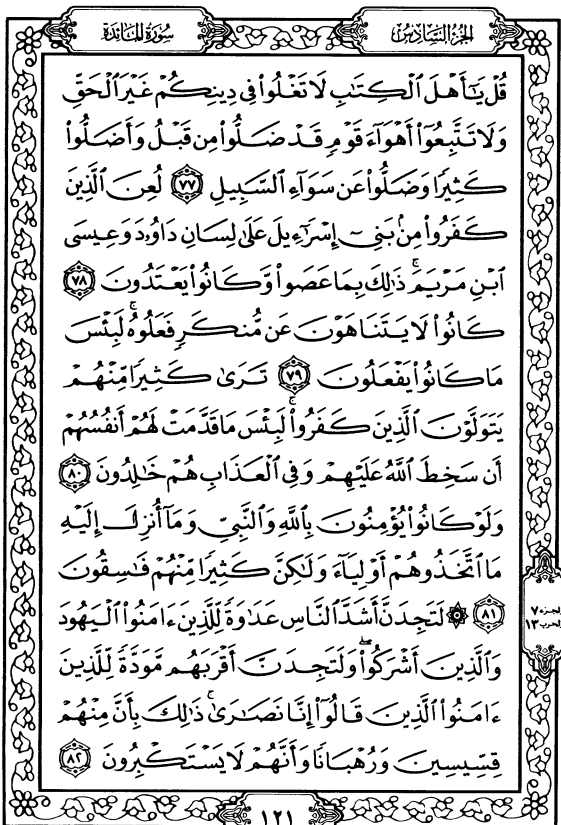 الجزء السادس
سورة المائدة
قُلْ يَـٰٓأَهْلَ ٱلْكِتَـٰبِ لَا تَغْلُوا۟ فِى دِينِكُمْ غَيْرَ ٱلْحَقِّ
وَلَا تَتَّبِعُوٓا۟ أَهْوَآءَ قَوْمٍ قَدْ ضَلُّوا۟ مِن قَبْلُ وَأَضَلُّوا۟
كَثِيرًا وَضَلُّوا۟ عَن سَوَآءِ ٱلسَّبِيلِ ٧٧ لُعِنَ ٱلَّذِينَ
كَفَرُوا۟ مِنۢ بَنِىٓ إِسْرَٰٓءِيلَ عَلَىٰ لِسَانِ دَاوُۥدَ وَعِيسَى
ٱبْنِ مَرْيَمَ ۚ ذَٰلِكَ بِمَا عَصَوا۟ وَّكَانُوا۟ يَعْتَدُونَ ٧٨
كَانُوا۟ لَا يَتَنَاهَوْنَ عَن مُّنكَرٍ فَعَلُوهُ ۚ لَبِئْسَ
مَا كَانُوا۟ يَفْعَلُونَ ٧٩ تَرَىٰ كَثِيرًا مِّنْهُمْ
يَتَوَلَّوْنَ ٱلَّذِينَ كَفَرُوا۟ ۚ لَبِئْسَ مَا قَدَّمَتْ لَهُمْ أَنفُسُهُمْ
أَن سَخِطَ ٱللَّهُ عَلَيْهِمْ وَفِى ٱلْعَذَابِ هُمْ خَـٰلِدُونَ ٨٠
وَلَوْ كَانُوا۟ يُؤْمِنُونَ بِٱللَّهِ وَٱلنَّبِىِّ وَمَآ أُنزِلَ إِلَيْهِ
مَا ٱتَّخَذُوهُمْ أَوْلِيَآءَ وَلَـٰكِنَّ كَثِيرًا مِّنْهُمْ فَـٰسِقُونَ
٨١ ۞ لَتَجِدَنَّ أَشَدَّ ٱلنَّاسِ عَدَٰوَةً لِّلَّذِينَ ءَامَنُوا۟ ٱلْيَهُودَ
وَٱلَّذِينَ أَشْرَكُوا۟ ۖ وَلَتَجِدَنَّ أَقْرَبَهُم مَّوَدَّةً لِّلَّذِينَ
ءَامَنُوا۟ ٱلَّذِينَ قَالُوٓا۟ إِنَّا نَصَـٰرَىٰ ۚ ذَٰلِكَ بِأَنَّ مِنْهُمْ
قِسِّيسِينَ وَرُهْبَانًا وَأَنَّهُمْ لَا يَسْتَكْبِرُونَ ٨٢
الجزء ٧
الحزب ١٣
١٢١